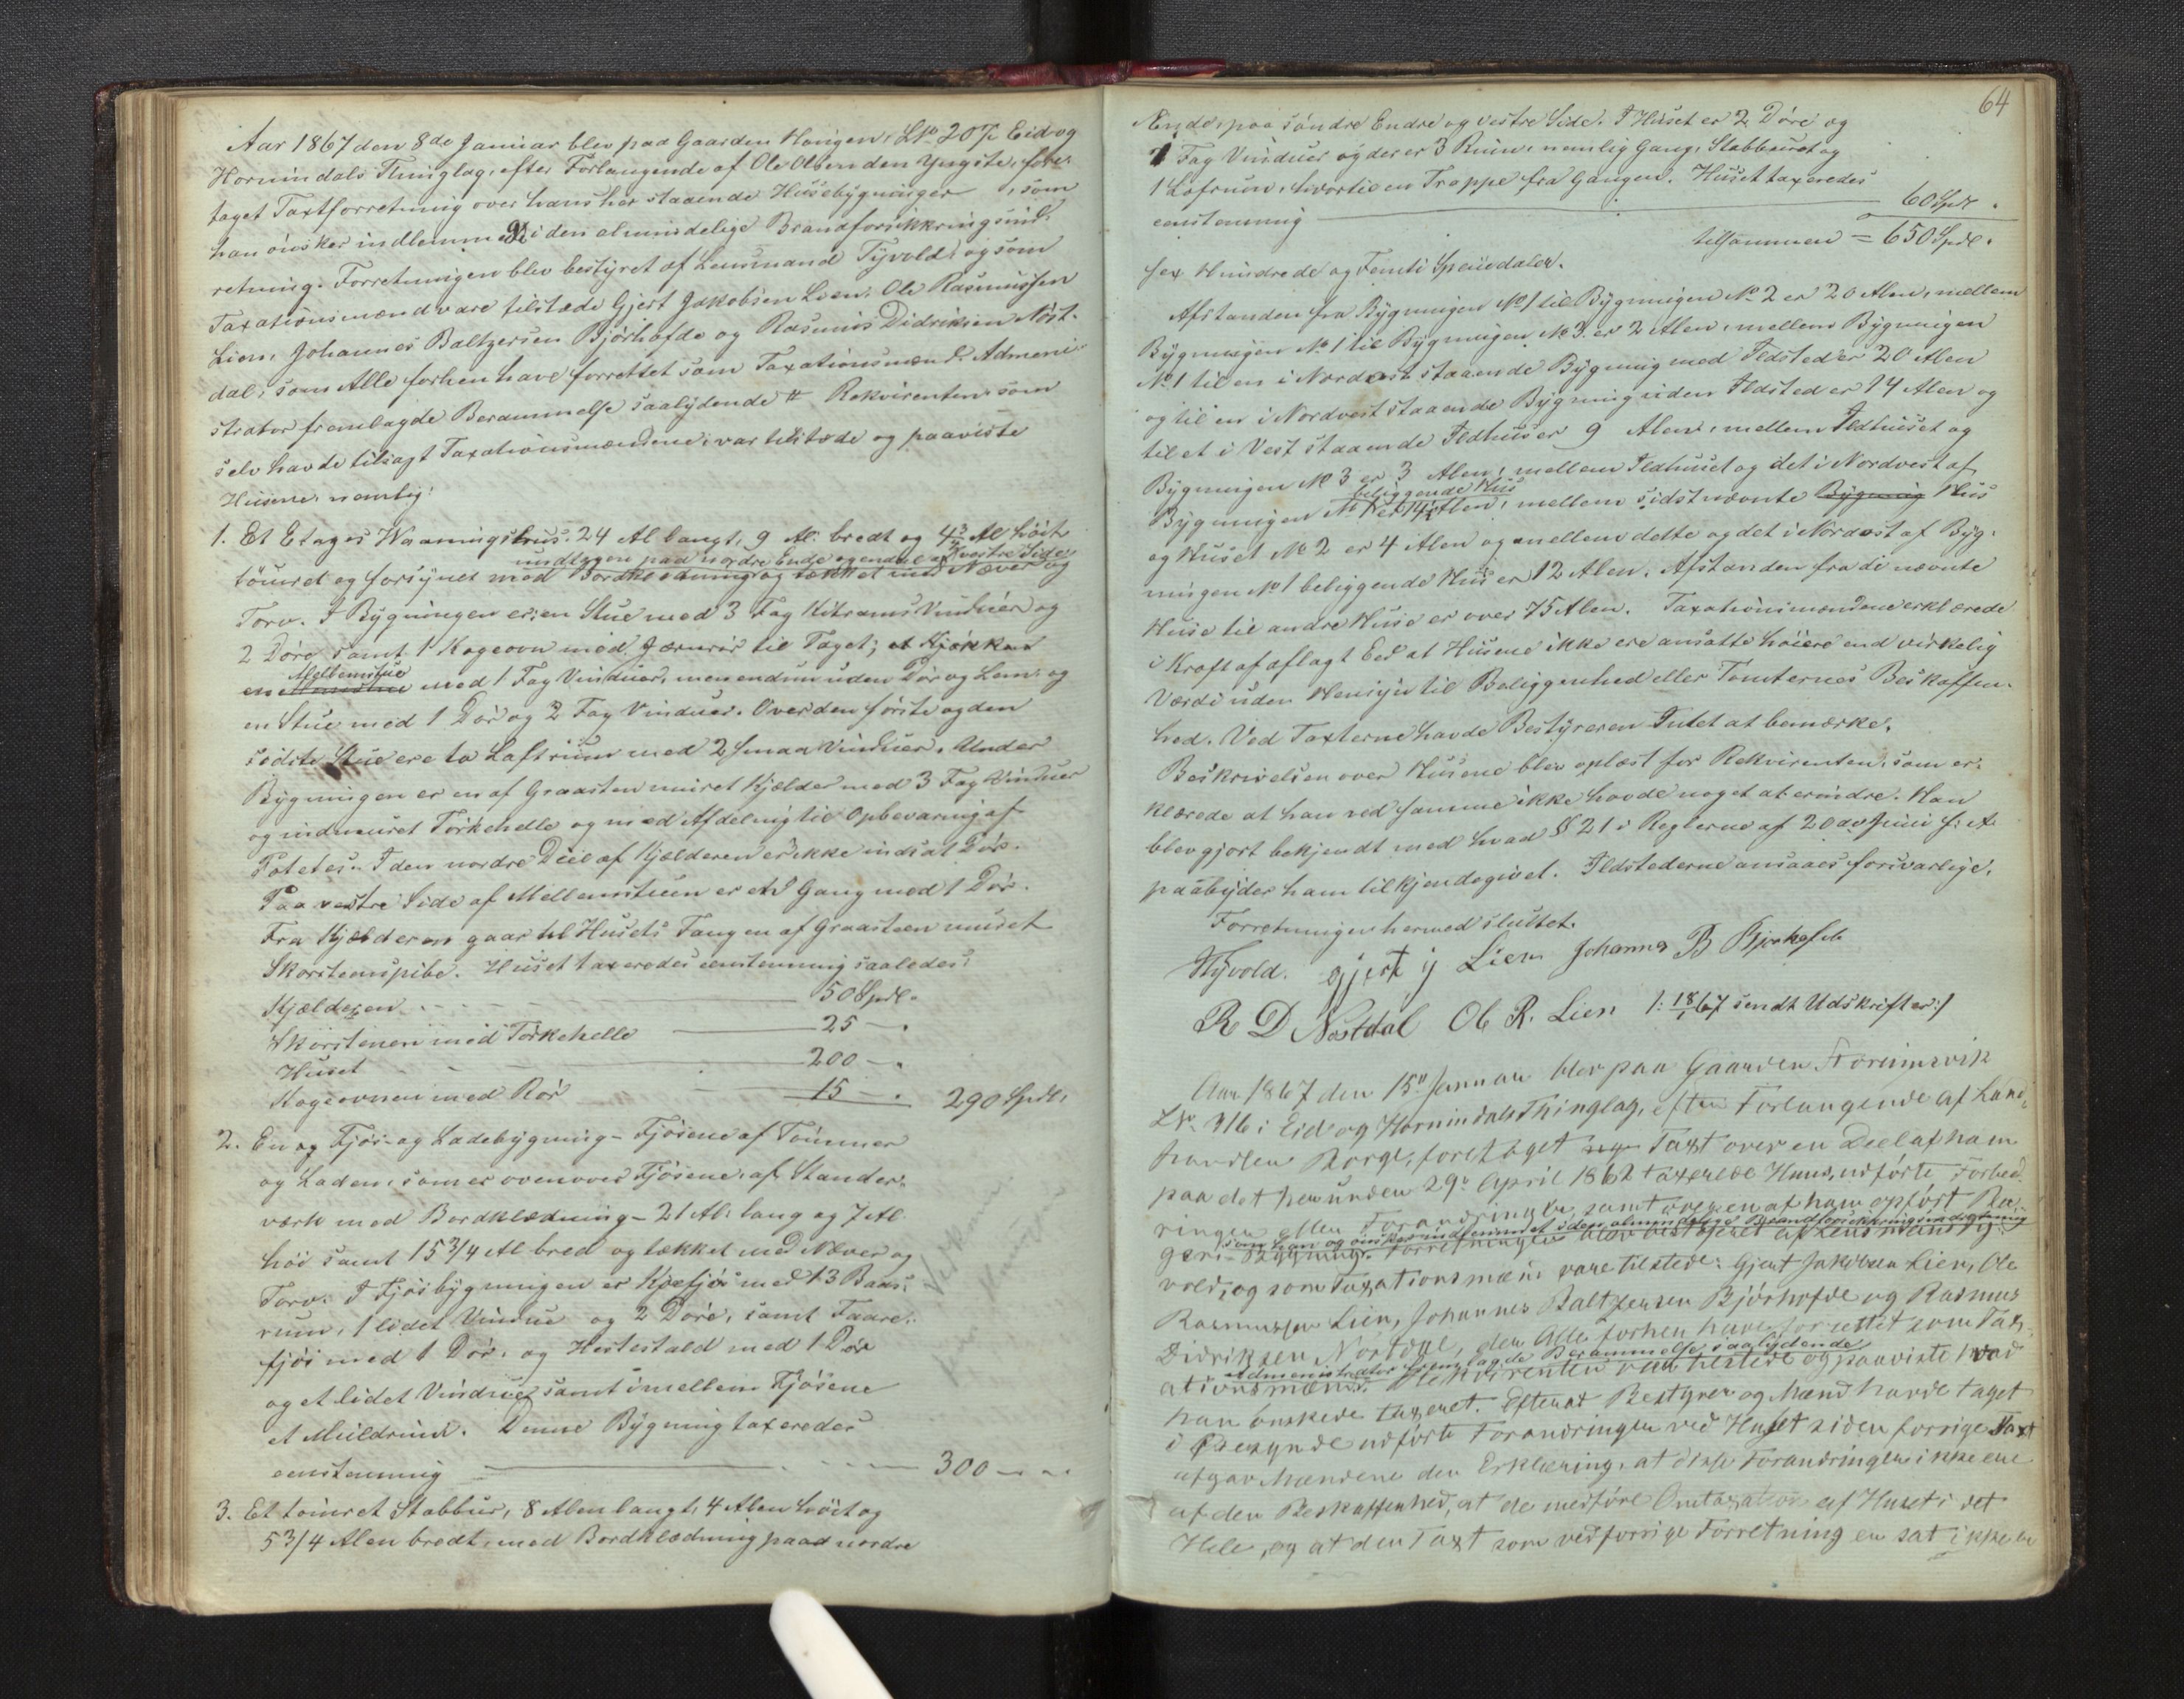 Aar 1867 den 8de Januar blev paa Gaarden Haugen, LNo 207c Eid og
Hornindals Thinglag, efter Forlangende af Ole Olsen den yngste, fore-
taget Taxtforretning over hans her staaende Husebygninger, som
han önsker indlemmede i den almindelige Brandforsikkringsind-
retning. Forretningen blev bestyret af Lensmand Tyvold, og som
Taxationsmænd vare tilstæde Gjert Jakobsen Lien, Ole Rasmussen
Lien, Johannes Baltzersen Bjørhofde og Rasmus Didriksen Nöst-
dal, som Alle forhen have forrettet som Taxationsmænd. Admini-
strator fremlagde Berammelse saalydende # Rekvirenten som
selv havde tilsagt Taxationsmændene, var tilstæde og paaviste
Husene, nemlig:
1. Et Etages Vaaningshus. 24 Al langt, 9 Al. bredt og 4¾ Al höit
undtagen paa nordre Ende og endeel af vestre Side
tömret og forsynet med Bordklædning og tækket med Næver og
Torv. I Bygningen er: en Stue med 3 Fag Vinduer og
2 Döre samt 1 Kogeovn med Jernrör til Taget; et Kjökken
Mellemstue
en med 1 Fag Vinduer, men endnu uden Dör og Lem og
en Stue med 1 Dör og 2 Fag Vinduer. Over den förste og den
sidste Stue ere to Loftrum med 2 smaa Vinduer. Under
Bygningen er en af Graasten muret Kjælder med 3 Fag Vinduer
og indmuret Törkehelle og med Afdeling til Opbevaring af
Potetes. I den nordre Deel af Kjælderen er ikke indsat Dör.
Paa vestre Side af Mellemstuen er en Gang med 1 Dör.
Fra Kjælderen gaar til Husets Tang en af Graasteen muret
Skorsteenspibe. Huset taxeredes eenstemmig saaledes:
Kjælderen 50 Spdl.
Skorstenen med Törkehelle 25 —
Huset 200 —
Kogeovnen med Rör 15 — 290 Spdl.
2. En Fjös- og Ladebygning – Fjösene af Tömmer
og Laden, som er ovenover Fjösene, af Stander-
værk med Bordklædning – 21 Al. lang og 7 Al
höi samt 15 3/4 Al bred og tækket med Næver og
Torv. I Fjösbygningen er Kofjös med 13 Baas-
rum, 1 lidet Vindue og 2 Döre, samt Faare-
fjös med 1 Dör, og Hestestald med 1 Dör
og et lidet Vindue samt imellem Fjösene
et Muldrum. Denne Bygning taxeredes
eenstemmig 300 —
3. Et tömret Stabbur, 8 Alen langt, 4 Alen höit og
5 3/4 Alen bredt, med Bordklædning paa nordre
64
Ende, paa söndre Ende og vestre Side. I Huset er 2 Döre og
1 Fag Vinduer og der er 3 Rum, nemlig Gang, Stabburet og
1 Loftrum, hvortil en Trappe fra Gangen. Huset taxeredes
eenstemmig 60 Spdl.
tilsammen = 650 Spdl.
sex Hundrede og Femti Speciedaler.
Afstanden fra Bygningen No 1 til Bygningen No 2 er 20 Alen, mellem
Bygningen No 1 til Bygningen No 3 er 2 Alen, mellem Bygningen
No 1 til en i Nordost staaende Bygning med Ildsted er 20 Alen
og til en i Nordvest staaende Bygning uden Ildsted er 14 Alen og
til et i Vest staaende Ildhus er 9 Alen, mellem Ildhuset og
Bygningen No 3 er 3 Alen, mellem Ildhuset og det i Nordvest af
beliggende Hus
Bygningen No 1 er 14 Alen, mellem sidstnævnte Bygning Hus
og Huset No 2 er 4 Alen og mellem dette og det i Nordost af Byg-
ningen No 1 beliggende Hus er 12 Alen. Afstanden fra di nævnte
Huse til andre Huse er over 75 Alen. Taxationsmændene erklærede
i Kraft af aflagt Eed at Husene ikke ere ansatte höiere end virkelig
Værdi uden Hensyn til Beliggenhed eller Tomternes Beskaffen-
hed. Ved Taxterne havde Bestyreren Intet at bemærke.
Beskrivelsen over Husene blev oplæst for Rekvirenten, som er-
klærede at han ved samme ikke havde noget at erindre. Han
blev gjort bekjendt med hvad § 21 i Reglerne af 20de Juni f: A:
paabyder ham tilkjendegivet. Ildstederne ansaaes forsvarlige.
Forretningen hermed sluttet.
Tyvold. gjert j Lien Johannes B Bjørhofde
R D Nøstdal Ole R. Lien /: 18/1 67 sendt Udskrifter :/
Aar 1867 den 15de Januar blev paa Gaarden Störiimsvik
LNr. 116 i Eid og Hornindals Thinglag, efter Forlangende af Land-
handler Borge, foretaget Taxt over en Deel af ham
paa det herunder 29de April 1862 taxerede Huus, udførte Forbed-
ringer eller Forandringer, samt over en af ham opført
som han og önsker indlemmet i den almindelige Brandforsikkringsindretning
Bygning. Forretningen blev bestyret af Lensmand Ty-
vold, og som Taxationsmænd vare tilstede: Gjert Jakobsen Lien, Ole
Rasmussen Lien, Johannes Baltzersen Bjørhofde og Rasmus
Didriksen Nøstdal, der Alle forhen have forrettet som Tax-
Administrator fremlagde Berammelse saalydende
ationsmænd. Rekvirenten var tilstede og paaviste hvad
han ønskede taxeret. Efterat Bestyrer og Mænd havde taget
i Øiesynde udførte Forandringer ved Huset siden forrige Taxt
afgav Mændene den Erklæring, at disse Forandringer ikke ere
af den Beskaffenhed, at de medføre Omtaxation af Huset i det
Hele, og at den Taxt som ved forrige Forretning er sat ikke er